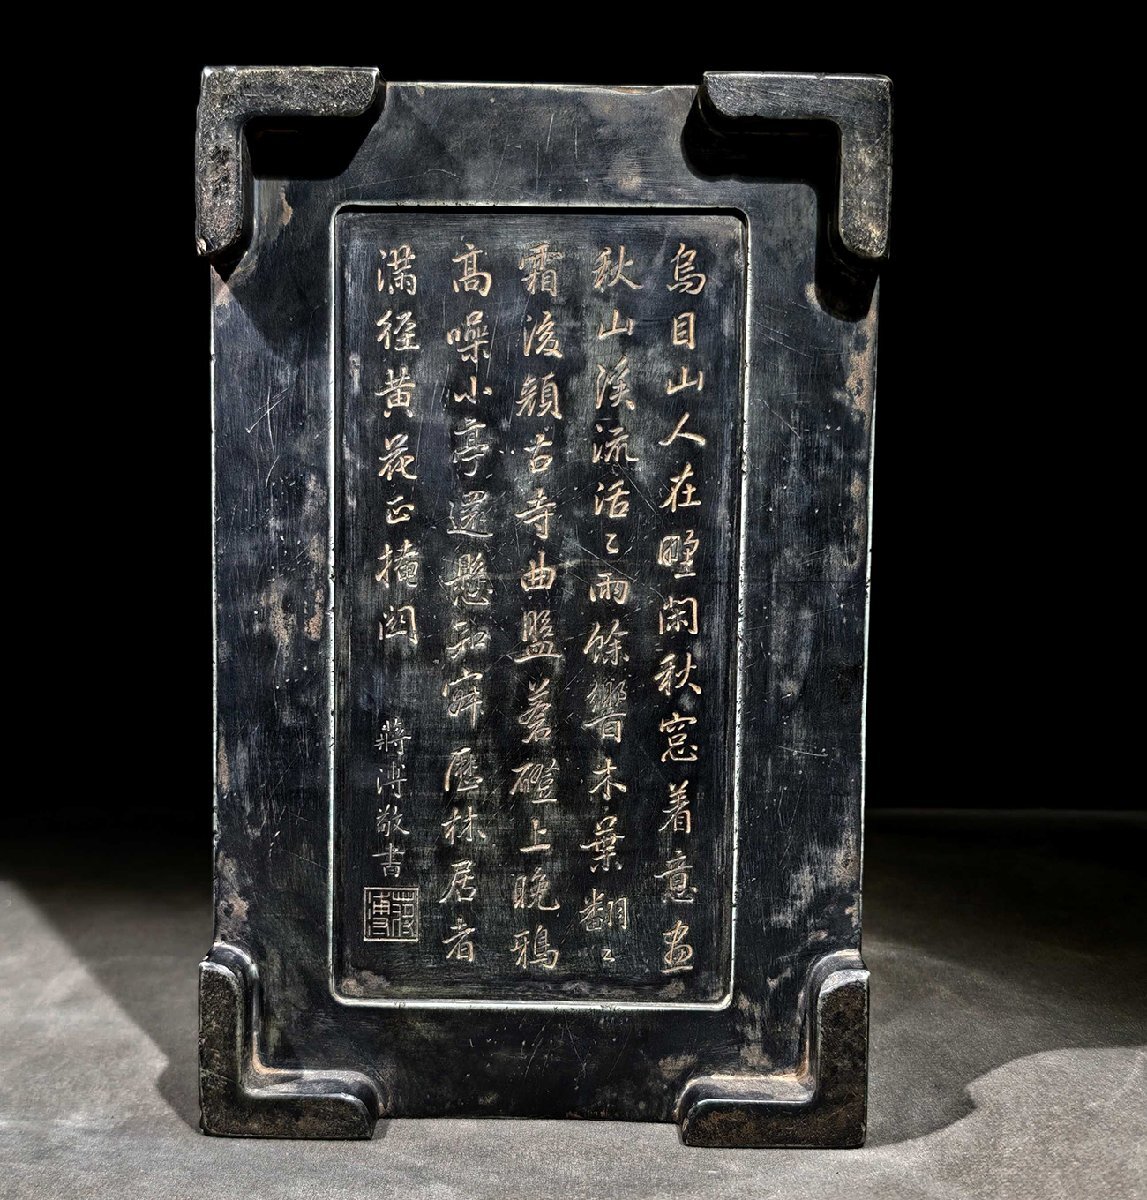 烏目山人在閑秋窓着意畫
秋山溪流活〻雨餘響木葉翻〻
霜後顏古寺曲盤蒼磴上晚鴉
高噪小亭還懸知寂歷林居者
滿徑黃花正掩関
蔣溥敬書
蔣溥